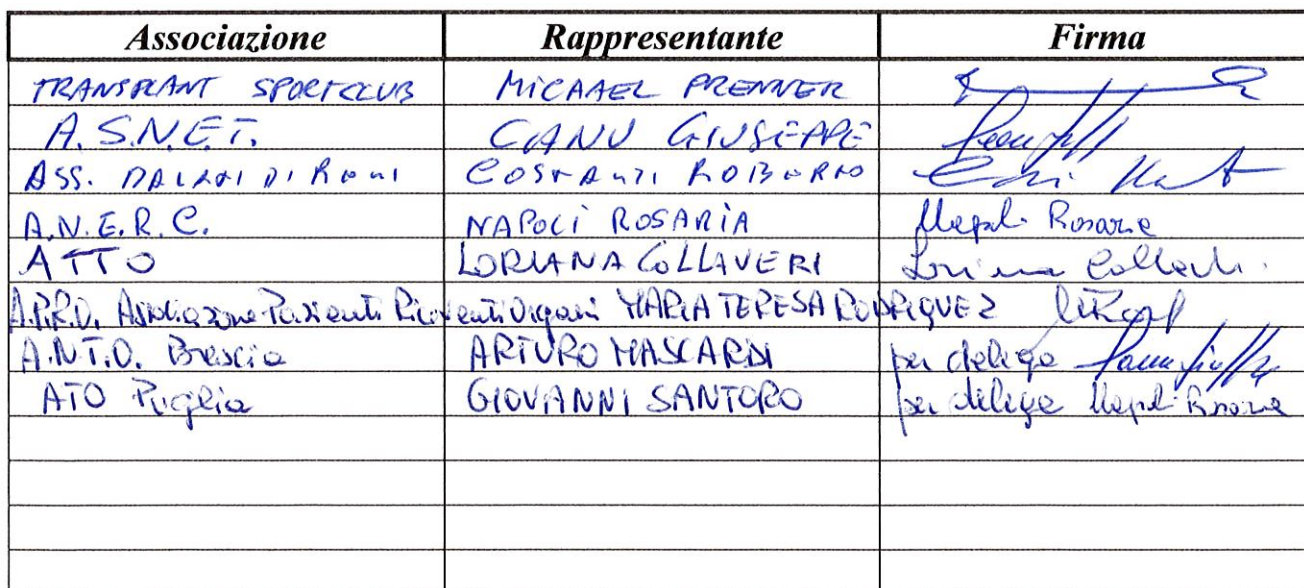 Associazione Rappresentante Firma
TRANSPLANT SPORTCLUB MICHAEL PRENNER
A.S.N.E.T. CANU GIUSEPPE
ASS. MALATI DI RENI COSTANZI ROBERTO
A.N.E.R.C. NAPOLI ROSARIA Napoli Rosaria
ATTO LORIANA COLLAVERI Loriana Collaveri
A.P.R.O. Associazione Pazienti Riceventi Organi MARIA TERESA RODRIQUEZ
A.N.T.O. Brescia ARTURO MASCARDI per delega
ATO Puglia GIOVANNI SANTORO per delega Napoli Rosaria